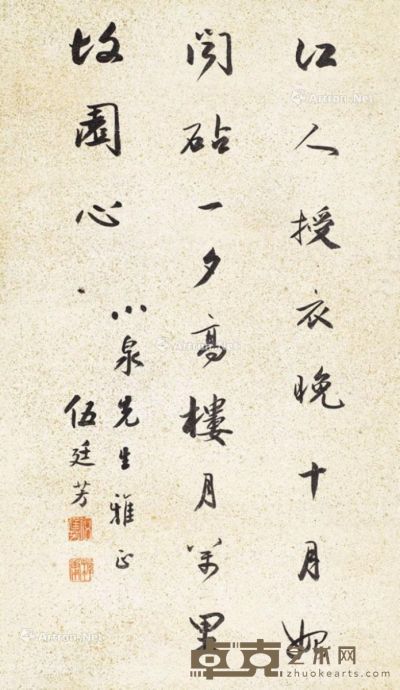 江人授衣晚十月始
闻砧一夕高楼月万里
故园心
小泉先生雅正
伍廷芳
卓克艺术网
zhuokearts.com
Artron.Net